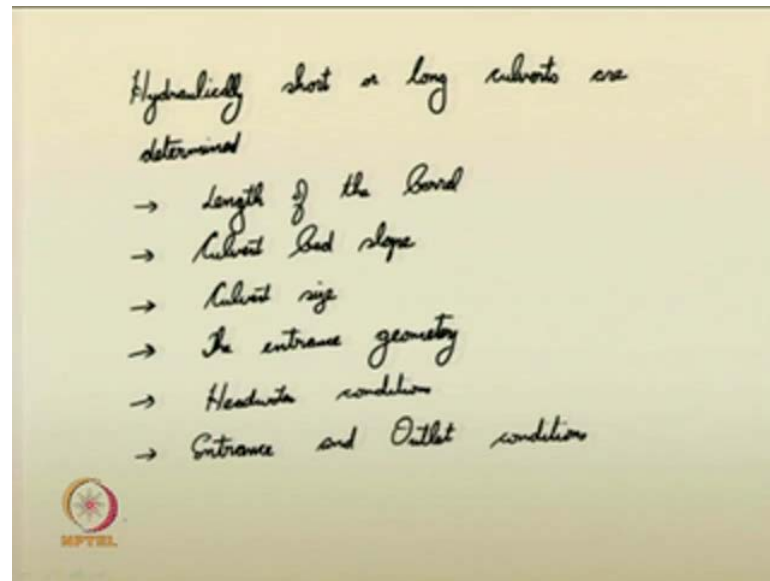 Hydraulically short or long culverts are
determined
→ Length of the Barrel
→ Culvert Bed slope
→ Culvert size
→ The entrance geometry
→ Headwater conditions
→ Entrance and Outlet conditions
NPTEL